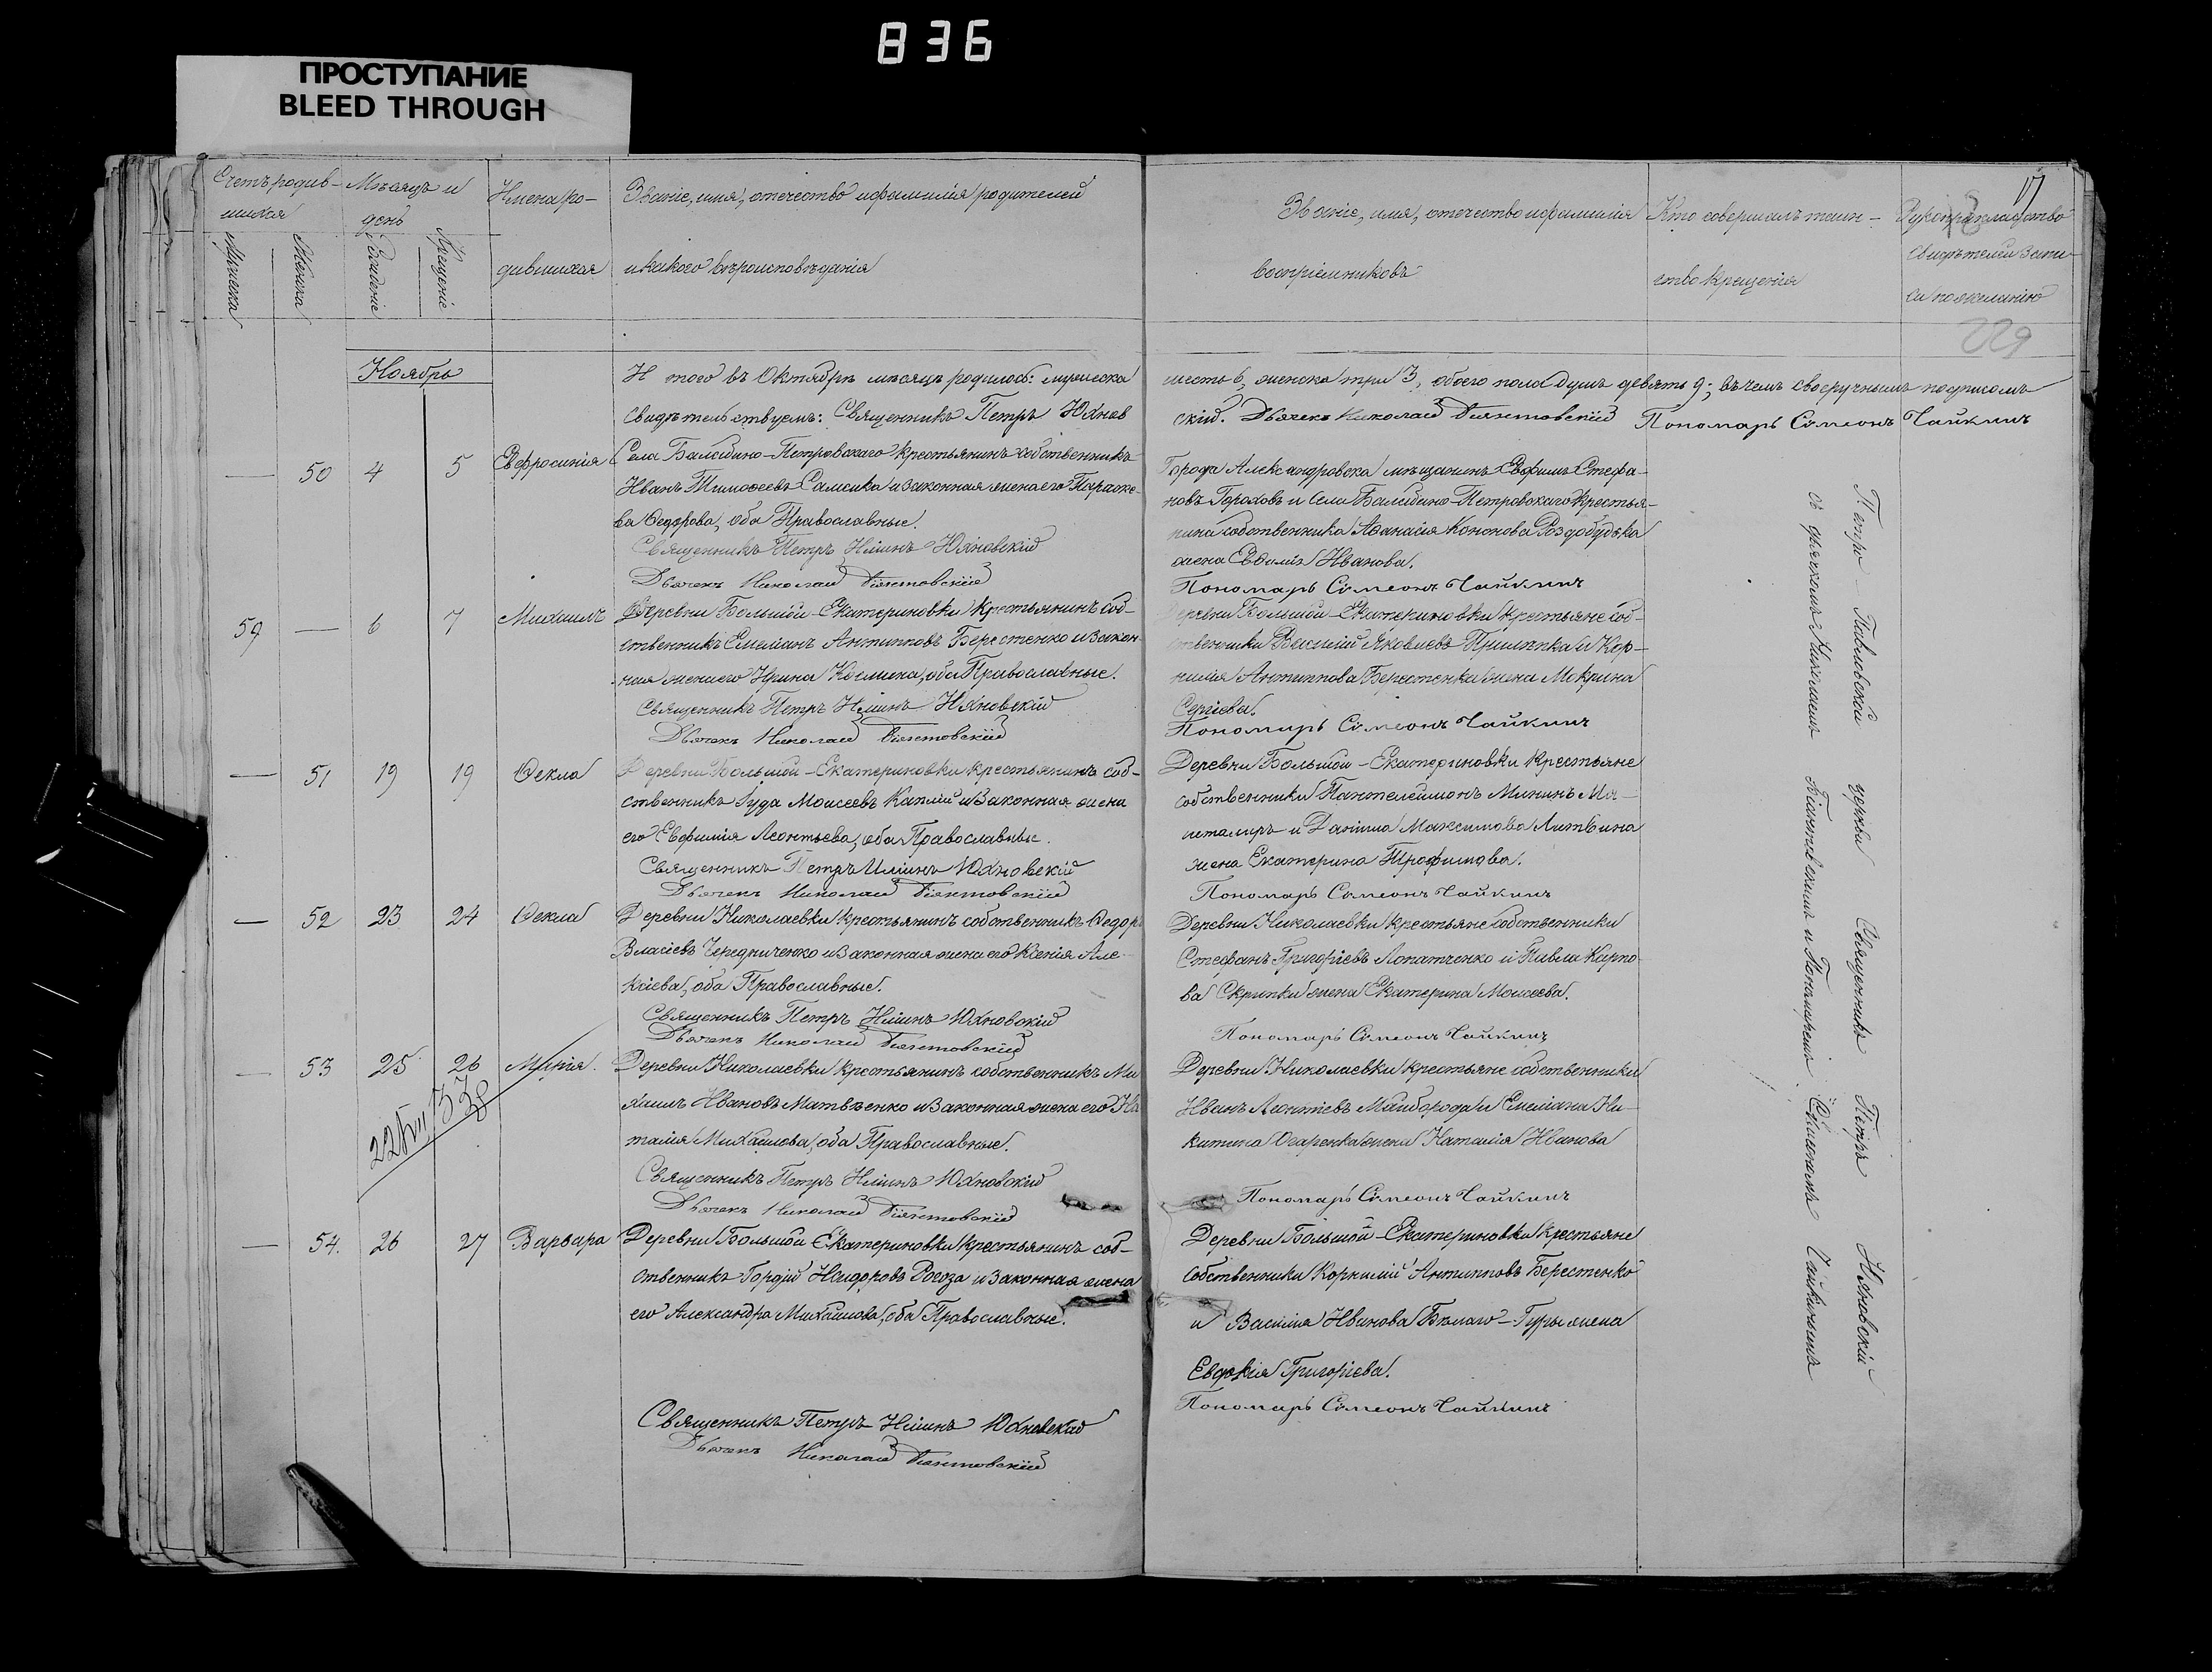 836
ПРОСТУПАНИЕ
BLEED THROUGH
17
Счетъ родив-
шихся
Мужеска
Женска
Мѣсяцъ и
день
Рожденіе
Крещеніе
Имена ро-
дившихся
Званіе, имя, отечество и фамилія родителей
и какого вѣроисповѣданія
Званіе, имя, отечество и фамилія
воспріемниковъ
Кто совершалъ таин-
ство крещенія
Рукоприкладство
свидѣтелей запи-
си по желанію
229
Ноябрь
И того въ Октябрѣ мѣсяцѣ родилось: мужеска шесть 6, женска три 3, обоего пола душъ девять 9; въ чемъ своеручнымъ подписомъ
свидѣтельствуемъ: Священникъ Петръ Юхновскій. Дьячекъ Николай Біянтовскій Пономарь Сѵмеонъ Чайкинъ
— 50 4 5 Евфросинія
Села Балабино-Петровскаго крестьянинъ собственникъ
Иванъ Тимофеевъ Самсика и законная жена его Параске-
ва Ѳедорова, оба Православные.
Священникъ Петръ Юхновскій
Дьячекъ Николай Біянтовскій
Города Александровска мѣщанинъ Евфимъ Стефа-
новъ Гороховъ и Села Балабино-Петровскаго крестья-
нина собственника Аѳанасія Кононова Роздобудька
жена Евфимія Иванова.
Пономарь Сѵмеонъ Чайкинъ
59 — 6 7 Михаилъ
Деревни Большой-Екатериновки крестьянинъ соб-
ственникъ Емеліанъ Антиповъ Берестенко и закон-
ная жена его Ирина Косьмина, оба Православные.
Священникъ Петръ Юхновскій
Дьячекъ Николай Біянтовскій
Деревни Большой-Екатериновки крестьяне соб-
ственники Василій Яковлевъ Прилипка и Кор-
нилія Антипова Берестенка жена Мокрина
Сергіева.
Пономарь Сѵмеонъ Чайкинъ
— 51 19 19 Ѳекла
Деревни Большой-Екатериновки крестьянинъ соб-
ственникъ Іуда Моисеевъ Каплій и законная жена
его Евфимія Леонтьева, оба Православные.
Священникъ Петръ Юхновскій
Дьячекъ Николай Біянтовскій
Деревни Большой-Екатериновки крестьяне
собственники Пантелеимонъ Мининъ Ма-
шталиръ и Даніила Максимова Литвина
жена Екатерина Трофимова.
Пономарь Сѵмеонъ Чайкинъ
— 52 23 24 Ѳекла
Деревни Николаевки крестьянинъ собственникъ Ѳедоръ
Власіевъ Чередниченко и законная жена его Ксенія Але-
ксіева, оба Православные.
Священникъ Петръ Юхновскій
Дьячекъ Николай Біянтовскій
Деревни Николаевки крестьяне собственники
Стефанъ Григоріевъ Лопатченко и Павла Карпо-
ва Скрипки жена Екатерина Моисеева.
Пономарь Сѵмеонъ Чайкинъ
— 53 25 26 Марія.
Деревни Николаевки крестьянинъ собственникъ Ми-
хаилъ Ивановъ Матвѣенко и законная жена его На-
талія Михайлова, оба Православные.
Священникъ Петръ Юхновскій
Дьячекъ Николай Біянтовскій
Деревни Николаевки крестьяне собственники
Иванъ Леонтіевъ Майборода и Емеліана Ни-
китина Огаренка жена Наталія Иванова
Пономарь Сѵмеонъ Чайкинъ
— 54. 26 27 Варвара
Деревни Большой Екатериновки крестьянинъ соб-
ственникъ Гордій Исидоровъ Рогоза и законная жена
его Александра Михайлова, оба Православные.
Священникъ Петръ Юхновскій
Дьячекъ Николай Біянтовскій
Деревни Большой-Екатериновки крестьяне
собственники Корнилій Антиповъ Берестенко
и Василія Иванова Бѣлаго-Гуры жена
Евдокія Григоріева.
Пономарь Сѵмеонъ Чайкинъ
Петро-Павловской церкви Священникъ Петръ Юхновскій
съ дьячкомъ Николаемъ Біянтовскимъ и Пономаремъ Сѵмеономъ Чайкинымъ